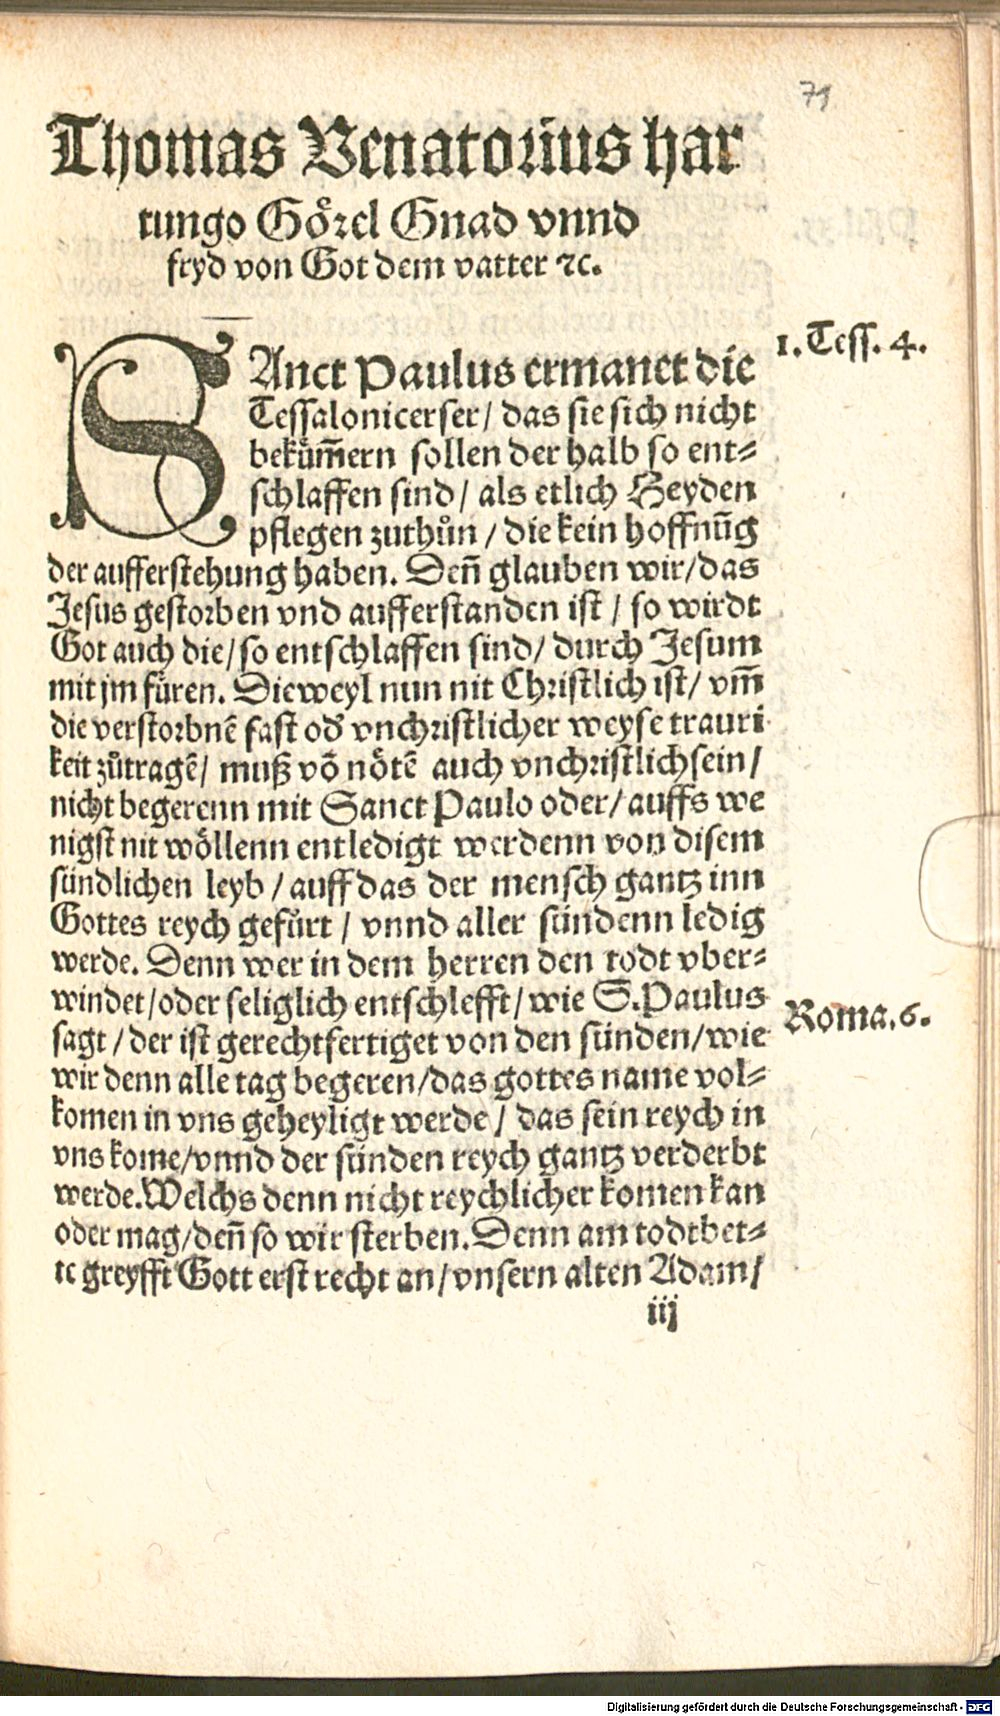 79
Thomas Venatorius har
tungo Go̊rel Gnad vnnd
fryd von Got dem vatter ꝛc.
SAnct Paulus ermanet die
1. Tess. 4.
Tessalonicerser/ das sie sich nicht
bekům̃ern sollen der halb so ent⸗
schlaffen sind/ als etlich Heyden
pflegen zuthůn/ die kein hoffnūg
der aufferstehung haben. Deñ glauben wir/das
Jesus gestorben vnd aufferstanden ist/ so wirdt
Got auch die/so entschlaffen sind/ durch Jesum
mit jm füren. Dieweyl nun nit Christlich ist/ vm̃
die verstorbnē fast od̕ vnchristlicher weyse trauri
keit zůtragē/ muß vō nötē auch vnchristlich sein/
nicht begerenn mit Sanct Paulo oder/ auffs we
nigst nit wöllenn entledigt werdenn von disem
sündlichen leyb/ auff das der mensch gantz inn
Gottes reych gefůrt/ vnnd aller sündenn ledig
werde. Denn wer in dem herren den todt vber⸗
windet/oder seliglich entschlefft/ wie S.Paulus
Roma.6.
sagt/der ist gerechtfertiget von den sünden/wie
wir denn alle tag begeren/das gottes name vol⸗
komen in vns geheyligt werde/ das sein reych in
vns kome/vnnd der sünden reych gantz verderbt
werde.Welchs denn nicht reychlicher komen kan
oder mag/deñ so wir sterben.Denn am todtbet⸗
te greyfft Gott erst recht an/vnsern alten Adam/
iij
Digitalisierung gefördert durch die Deutsche Forschungsgemeinschaft - DFG